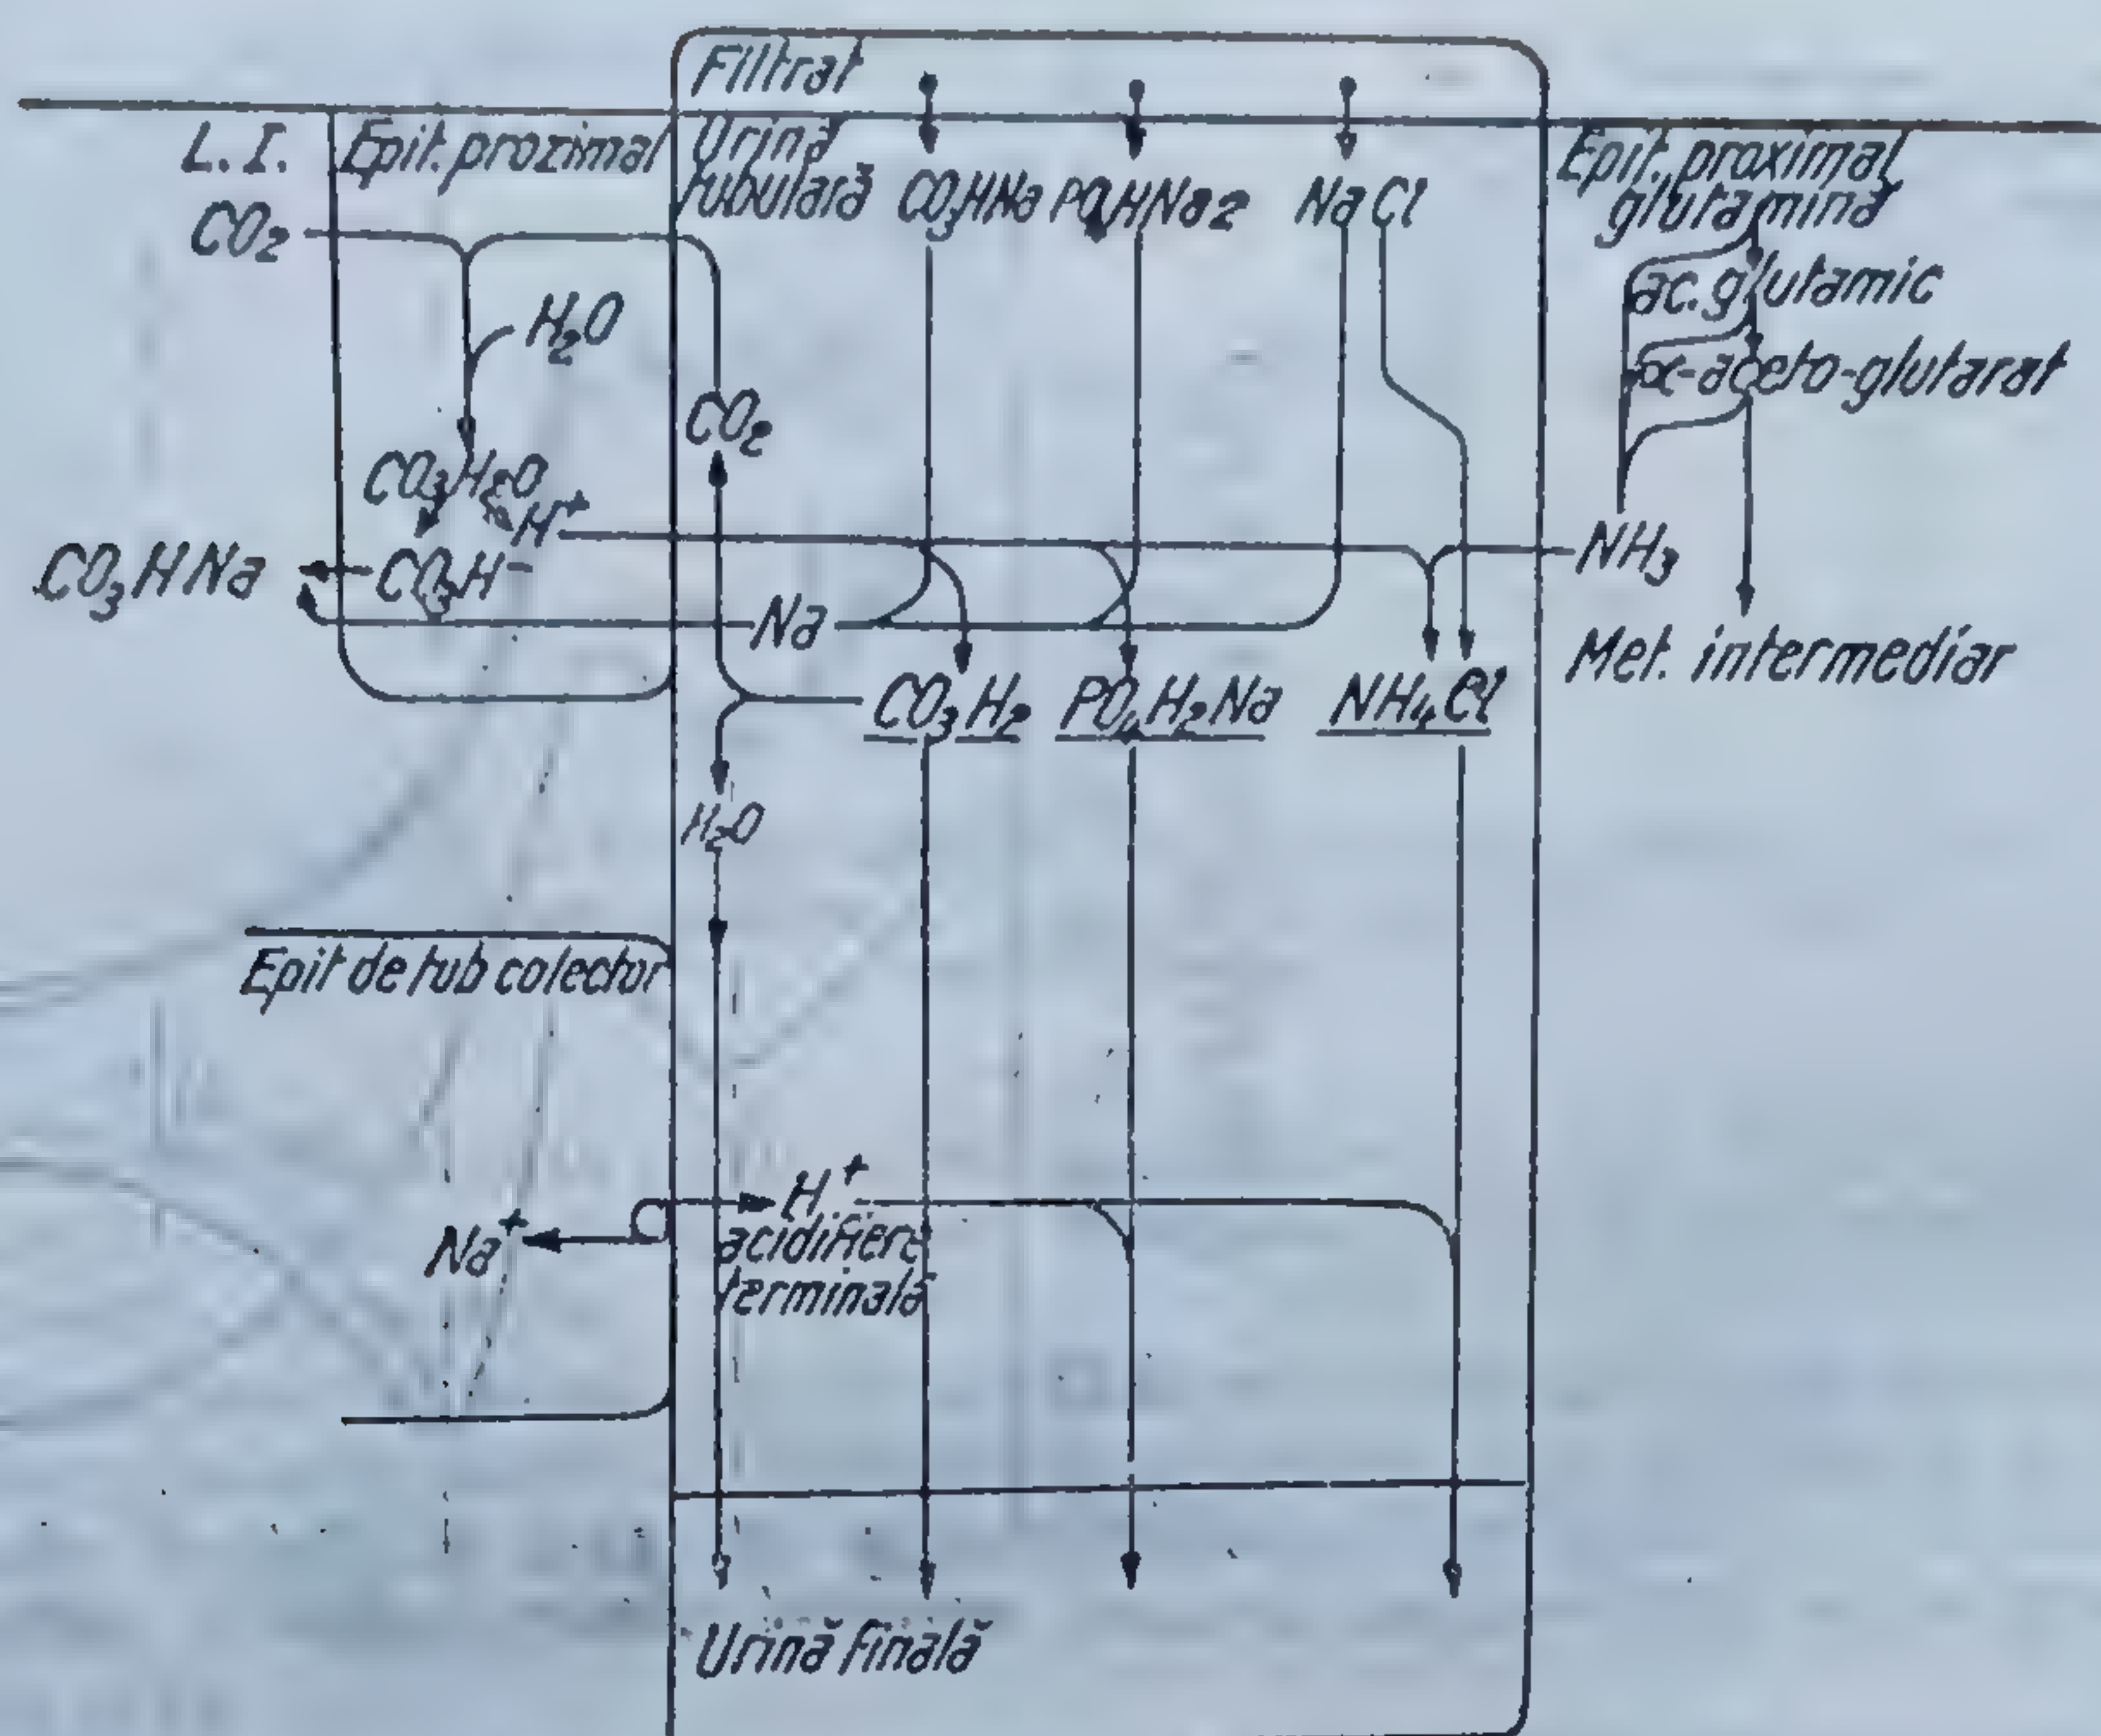 Filtrat
L. I.
Epit. prozimal
Urină
tubulară
CO₃HNa
PO₄HNa2
NaCl
Epit. proximal
glutamină
ac. glutamic
α-aceto-glutarat
NH₃
Met. intermediar
CO₂
H₂O
CO₂
CO₃H₂O
H⁺
CO₃HNa
CO₃H⁻
Na
CO₃H₂
PO₄H₂Na
NH₄Cl
H₂O
Epit de tub colector
H⁺
acidifiere
terminală
Na⁺
Urină finală